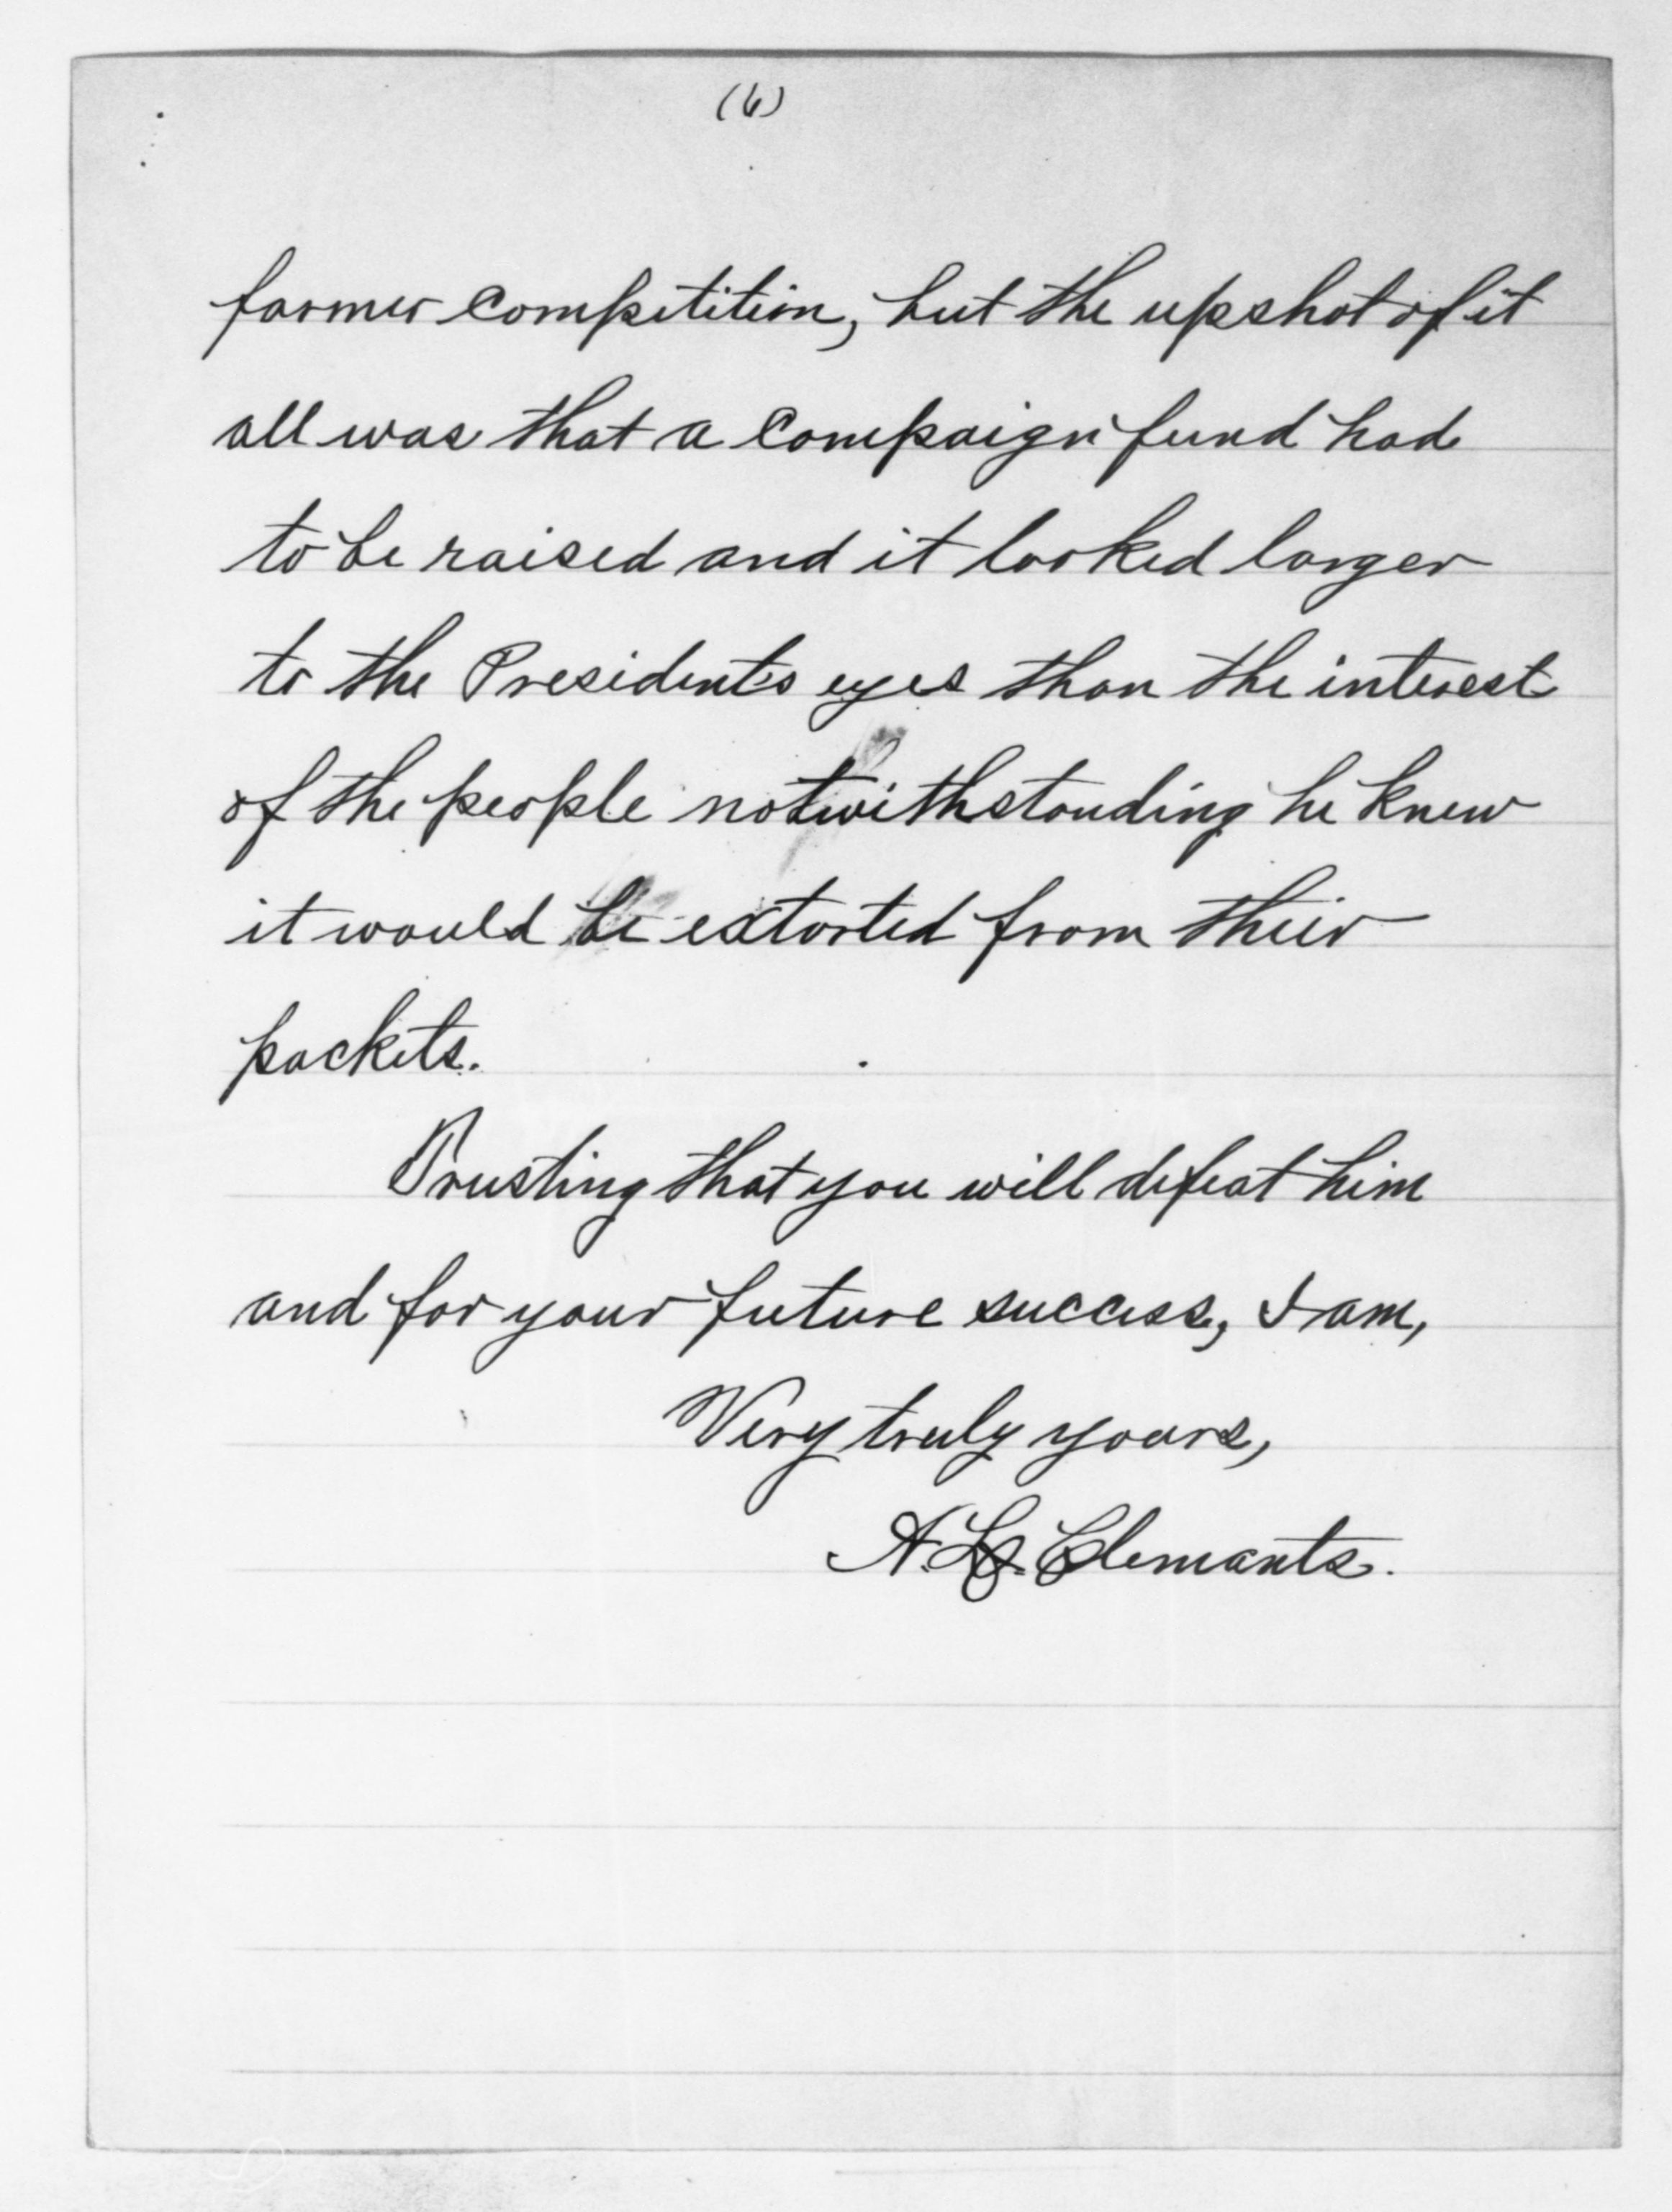 (6)
former competition, but the upshot of it
all was that a campaign fund had
to be raised and it looked larger
to the President's eyes than the interest
of the people notwithstanding he knew
it would be extorted from their
pockets.
Trusting that you will defeat him
and for your future success, I am,
Very truly yours,
A. L. Clemants.